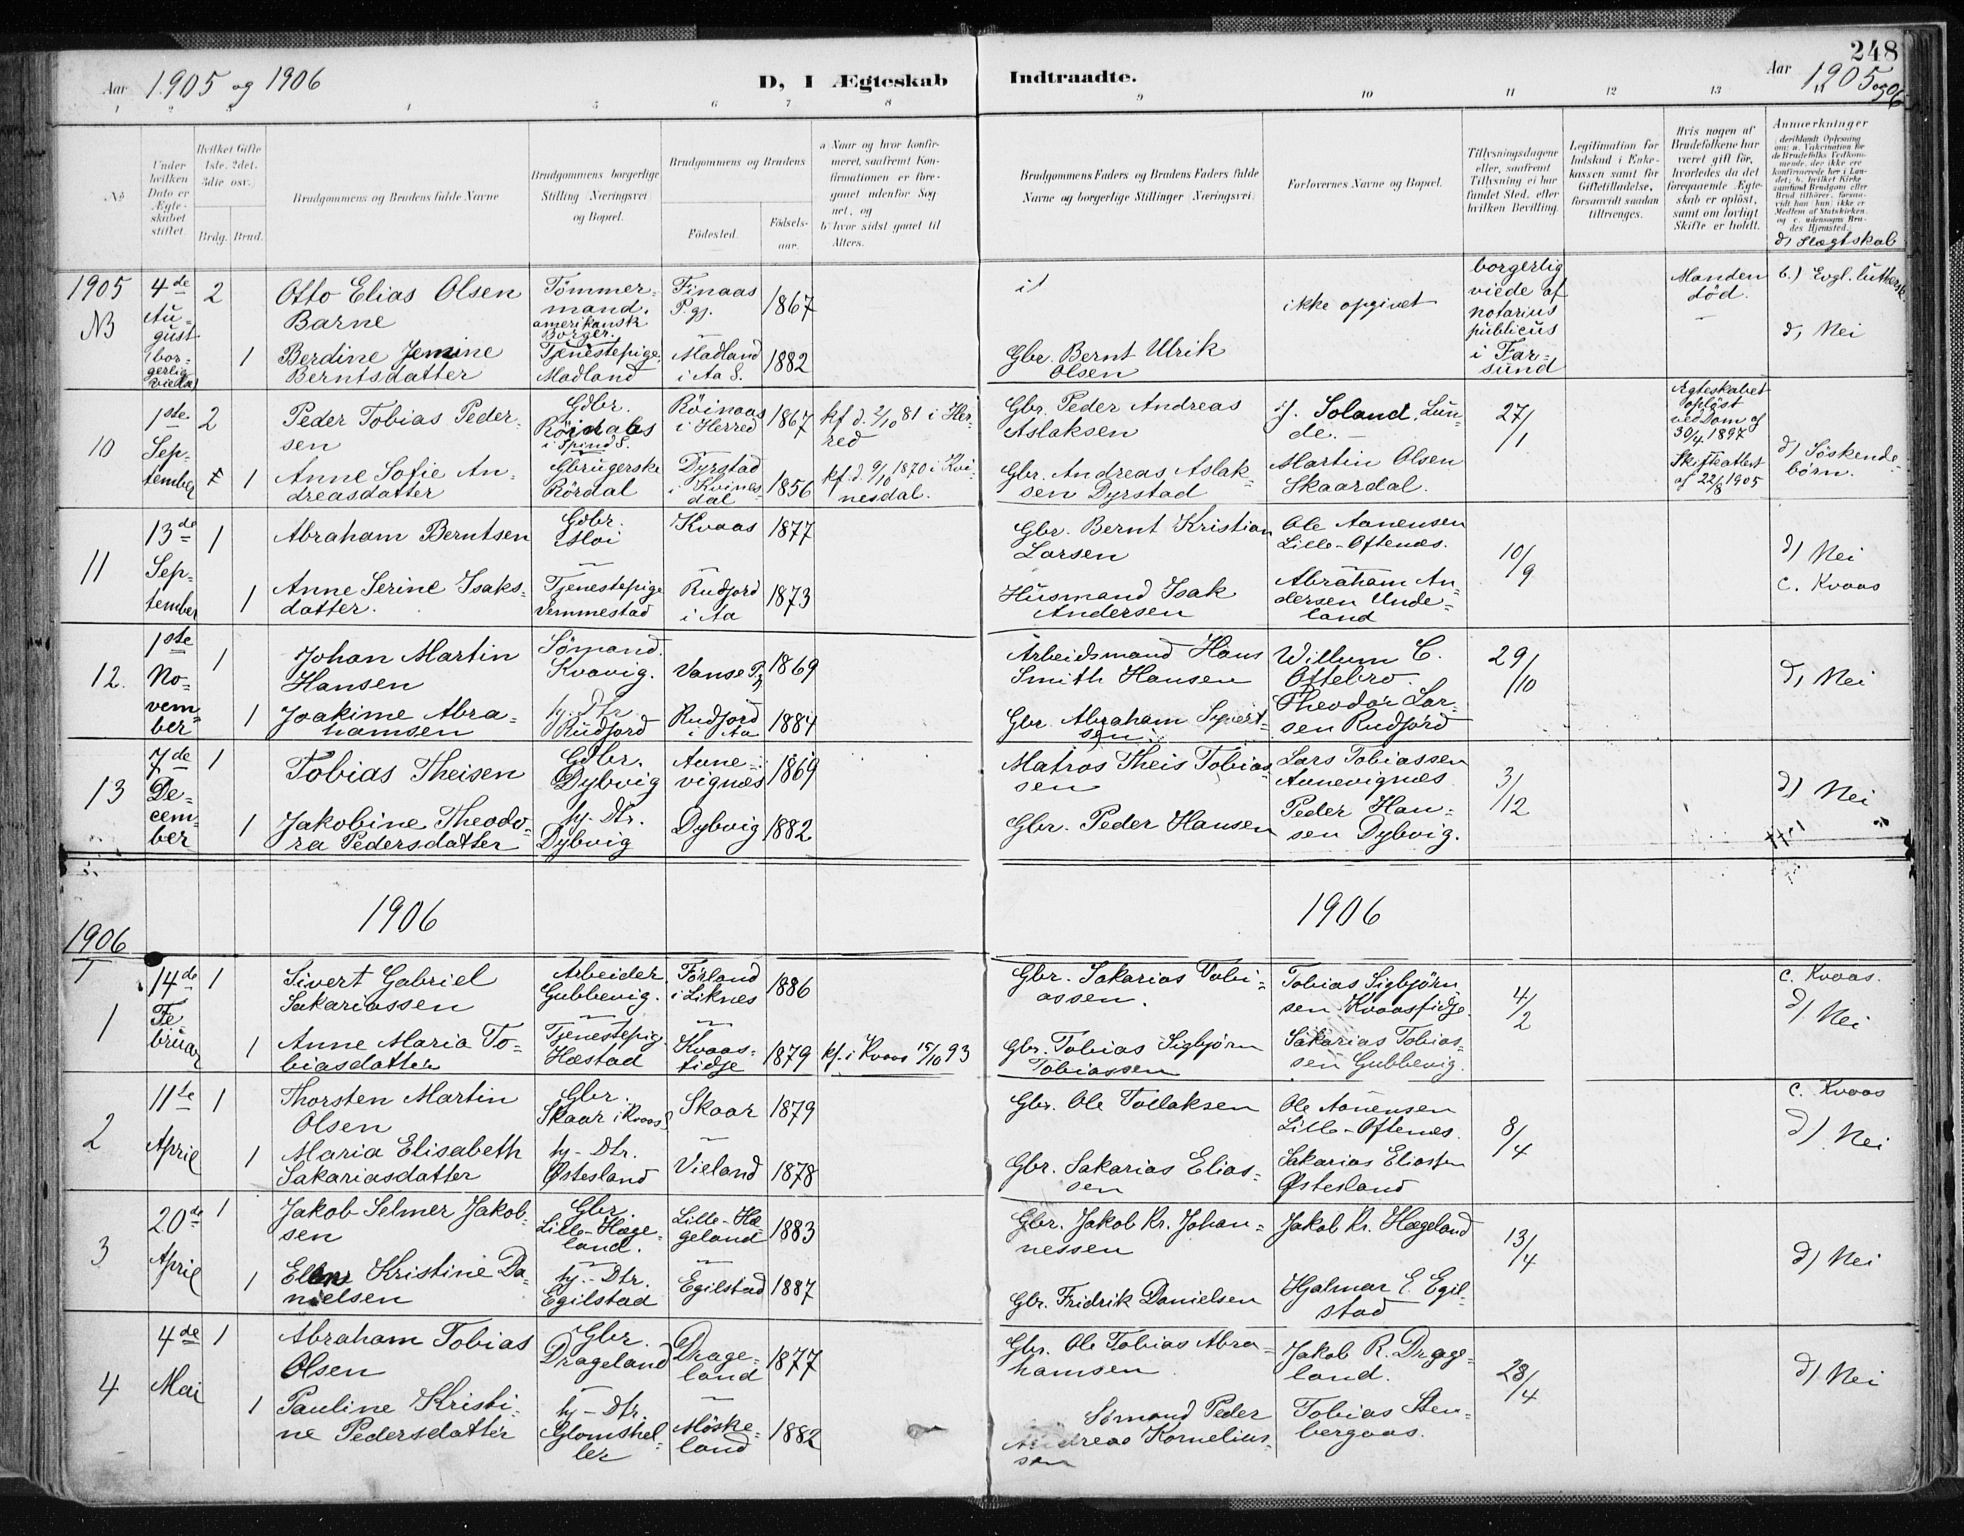 248
Aar 1905 og 1906
D, I Ægteskab
Indtraadte.
Aar 1905 og 06
1 2 4 5 6 7 8 9 10 11 12 13
No
Under hvilken Dato er Ægteskabet stiftet.
Hvilket Gifte 1ste, 2det, 3die osv.)
Brdg. Brud.
Brudgommens og Brudens fulde Navne
Brudgommens borgerlige Stilling (Næringsvei) og Bopæl.
Brudgommens og Brudens
Fødested.
Fødselsaar.
a) Naar og hvor konfirmeret, saafremt Konfirmationen er foregaaet udenfor Sognet, og
b) hvor sidst gaaet til Alters.
Brudgommens Faders og Brudens Faders fulde Navne og borgerlige Stillinger (Næringsvei)
Forlovernes Navne og Bopæl.
Tillysningsdagene eller, saafremt Tillysning ei har fundet Sted, efter hvilken Bevilling.
Legitimation for Indskud i Enkekassen samt for Giftetilladelse, forsaavidt saadan tiltrænges.
Hvis nogen af Brudefolkene har været gift før, hvorledes da det foregaaende Ægteskab er opløst, samt om lovligt Skifte er holdt.
Anmærkninger
d) Slægtskab
1905
NB
4de August (borgerlig viede)
2
Otto Elias Olsen Barne
Tømmermand. amerikansk Borger.
Finaas P.gj.
1867
ikke opgivet
borgerlig viede af notarius publicus i Farsund
Manden død.
b.) Evgl. luthersk
d, Nei
1
Berdine Jemine Berntsdatter
Tjenestepige. Madland
Madland i Aa S.
1882
Gbr. Bernt Ulrik Olsen
10
1ste September
2
Peder Tobias Pedersen
Gdbr. Röinaas i Spind S.
Röinaas i Herred
1867
kf d. 2/10 81 i Herred
Gbr. Peder Andreas Aslaksen
Soland, Lunde.
27/1
Ægteskabet opløst ved Dom af 30/4 1897
Skifteattest af 22/8 1905
d) Söskendebörn.
1
Anne Sofie Andreasdatter
Gbrugerske Rördal
Dyrstad i Kvinesdal
1856
kf. d. 9/10 1870 i Kvinesdal.
Gbr. Andreas Aslaksen Dyrstad
Martin Olsen Skaardal.
11
13de September
1
Abraham Berntsen
Gdbr. Moi
Kvaas
1877
Gbr. Bernt Kristian Larsen
Ole Aanensen Lille-Oftenæs.
10/9
d) Nei
c. Kvaas
1
Anne Serine Isaksdatter.
Tjenestepige Vemmestad
Rudjord i Aa
1873
Husmand Isak Andersen
Abraham Andersen Undeland
12.
1ste November
1
Johan Martin Hansen
Sømand. Kvavig.
Vanse P.gj
1869
Arbeidsmand Hans Smith Hansen
Willum C. Ottebro.
29/10
d, Nei
1
Joakime Abrahamsen
hj. Dtr. Rudjord
Rudjord i Aa
1884
Gbr. Abraham Syvertsen.
Theodor Larsen Rudjord
13
7de December
1
Tobias Theisen
Gdbr. Dybvig
Aunevignæs
1869
Matros Theis Tobiassen
Lars Tobiassen Aunevignæs
3/12
d) Nei
1
Jakobine Theodora Pedersdatter
hj. Dtr. Dybvig
Dybvig
1882
Gbr. Peder Hansen
Peder Hansen Dybvig.
1906
1906
1906
1
14de Februar
1
Sivert Gabriel Sakariassen
Arbeider Gubbevig.
Förland i Liknes
1886
Gbr. Sakarias Tobiassen.
Tobias Sigbjörnsen Kvaasfidje.
4/2
c. Kvaas.
d) Nei
1
Anne Maria Tobiasdatter
Tjenestepig Hæstad
Kvaasfidje
1879
kf. i Kvaas 15/10 93
Gbr. Tobias Sigbjørn Tobiassen
Sakarias Tobiassen Gubbevig.
2
11te April
1
Thorsten Martin Olsen
Gbr. Skaar i Kvaas S
Skaar
1879
Gbr. Ole Tollaksen
Ole Aanensen Lille-Oftenæs.
8/4
c. Kvaas
d) Nei
1
Maria Elisabeth Sakariasdatter
hj-Dtr. Østesland
Vieland
1878
Gbr. Sakarias Eliassen
Sakarias Eliassen Østesland
3
20de April
1
Jakob Selmer Jakobsen
Gbr. Lille-Hægeland.
Lille-Hægeland
1883
Gbr. Jakob Kr. Johannessen
Jakob Kr. Hægeland
13/4
d) Nei
1
Ellen Kristine Danielsen
hj.-Dtr. Egilstad
Egilstad
1887
Gbr. Fridrik Danielsen
Hjalmar E. Egilstad
4
4de Mai
1
Abraham Tobias Olsen
Gbr. Drageland
Drageland
1877
Gbr. Ole Tobias Abrahamsen
Jakob R. Drageland.
28/4
d) Nei
1
Pauline Kristine Pedersdatter
hj-Dtr. Glomsheller
Möskeland
1882
Sømand Peder Andreas Korneliussen
Tobias Stenbergaas.